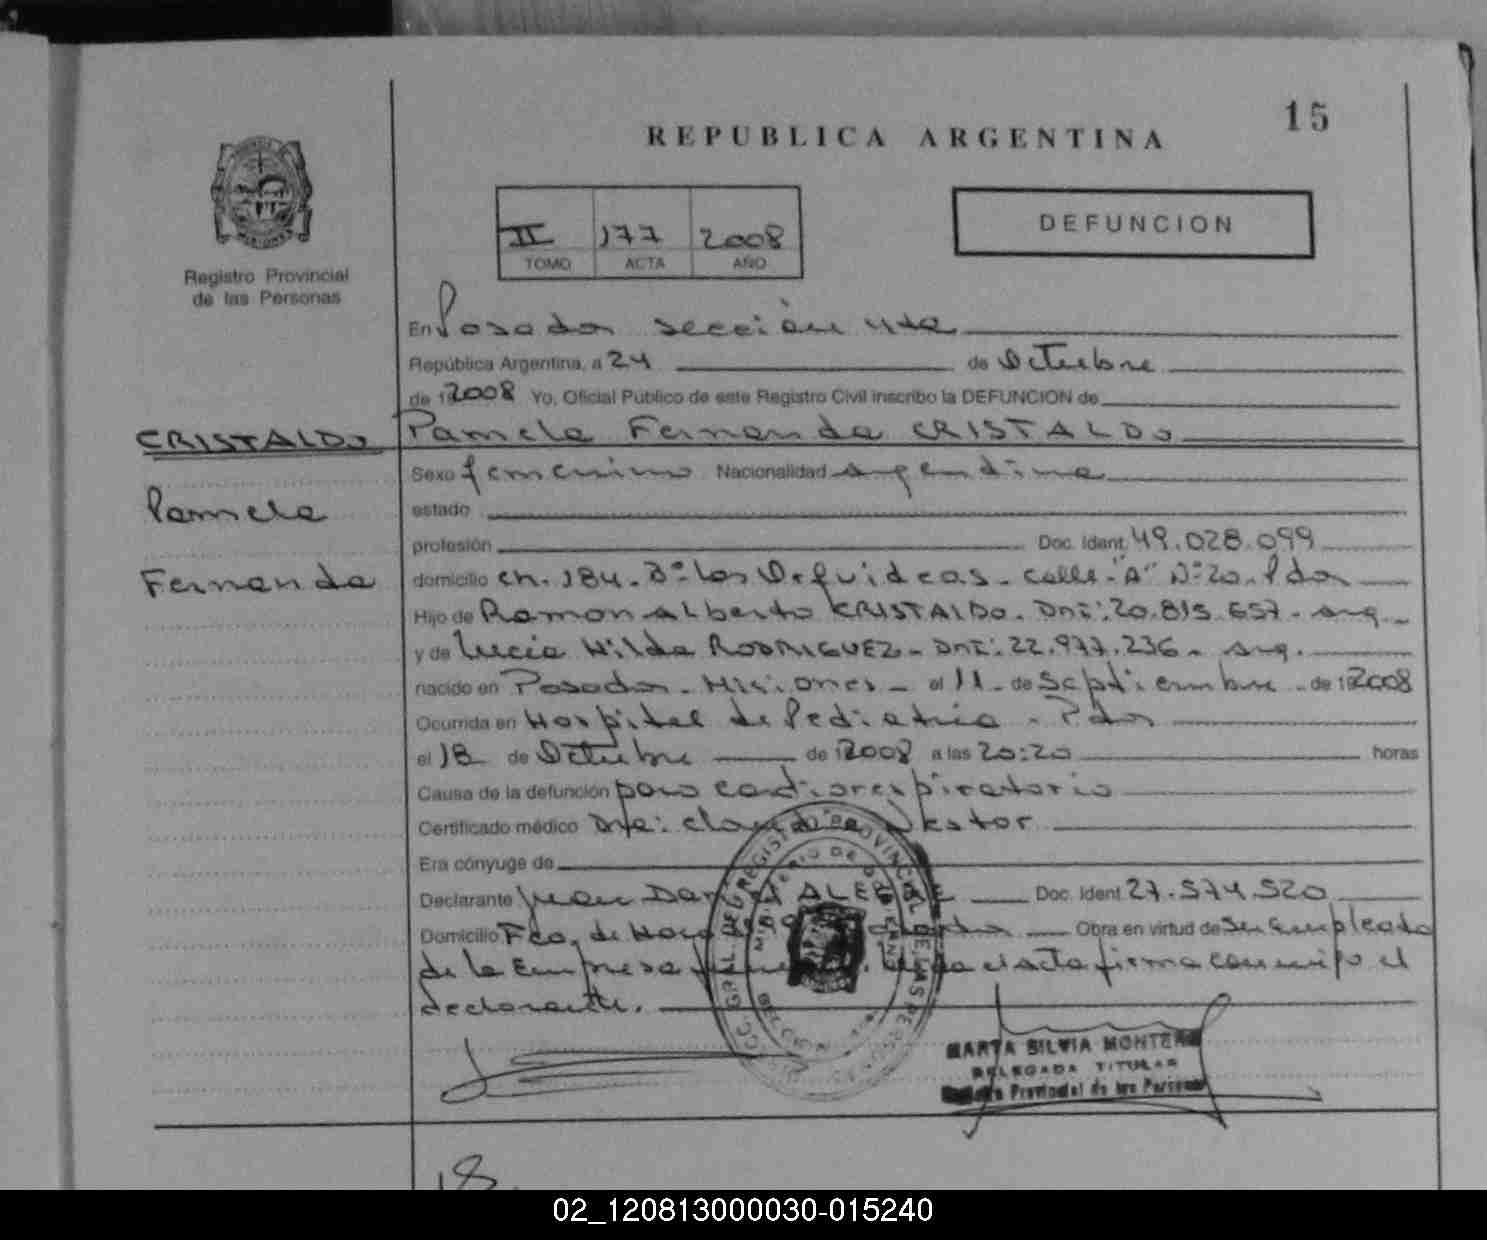 15
REPUBLICA ARGENTINA
DEFUNCION
II 177 2008
TOMO ACTA AÑO
Registro Provincial
de las Personas
En Posadas sección 4ta
República Argentina, a 24 de Octubre
de 12008 Yo, Oficial Público de este Registro Civil inscribo la DEFUNCION de
CRISTALDO
Pamela
Fernanda
Pamela Fernanda CRISTALDO
Sexo femenino Nacionalidad argentina
estado
profesión Doc. Ident. 49.028.099
domicilio Ch. 184. Bº Los calle "A" Nº 20. Pdas
Hijo de Ramon Alberto CRISTALDO. DNI: 20.815.657. arg.
y de Lucia Hilda RODRIGUEZ - DNI: 22.977.236. arg.
nacido en Posadas - Misiones - el 11 de Septiembre de 12008
Ocurrida en Hospital de Pediatria - Pdas
el 18 de Octubre de 12008 a las 20:20 horas
Causa de la defunción paro cardiorespiratorio
Certificado médico Nestor
Era cónyuge de
Declarante Juan Doc. Ident. 27.574.520
Domicilio Fco. de Haro Obra en virtud de ser empleado
de la Empresa el acta firma conmigo el
declarante.
MARTA SILVIA MONTERO
DELEGADA TITULAR
Registro Provincial de las Personas
18.
02_120813000030-015240